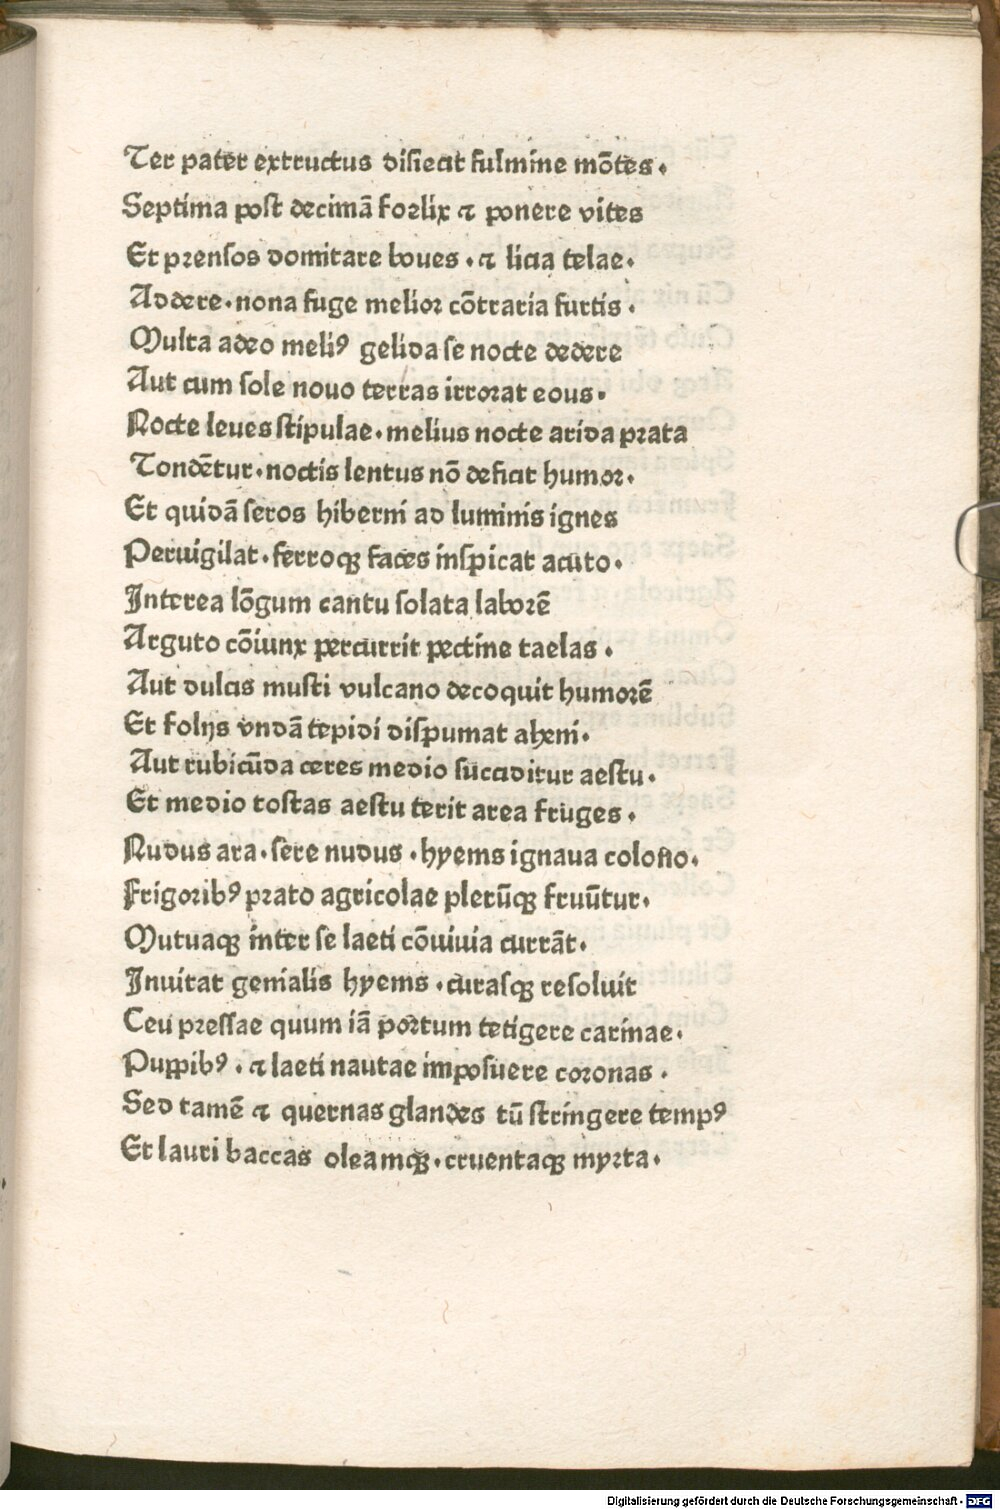 Ter pater extructus disiecit fulmine mõtes.
Septima post decimã foelix ⁊ ponere vites
Et prensos domitare boues. ⁊ licia telae.
Addere. nona fuge melior cõtraria furtis.
Multa adeo meliꝰ gelida se nocte dedere
Aut cum sole nouo terras irrorat eous.
Nocte leues stipulae. melius nocte arida prata
Tondẽtur. noctis lentus nõ deficit humor.
Et quidã seros hiberni ad luminis ignes
Peruigilat. ferroqꝫ faces inspicat acuto.
Interea lõgum cantu solata laborẽ
Arguto cõiunx percurrit pectine taelas.
Aut dulcis musti vulcano decoquit humorẽ
Et folijs vndã tepidi dispumat aheni.
Aut rubicũda ceres medio succiditur aestu.
Et medio tostas aestu terit area fruges.
Nudus ara. sere nudus. hyems ignaua colono.
Frigoribꝰ prato agricolae plerũqꝫ fruũtur.
Mutuaqꝫ inter se laeti cõuiuia currãt.
Inuitat genialis hyems. curasqꝫ resoluit
Ceu pressae quum iã portum tetigere carinae.
Puppibꝰ. ⁊ laeti nautae imposuere coronas.
Sed tamẽ ⁊ quernas glandes tũ stringere tempꝰ
Et lauri baccas oleamqꝫ. cruentaqꝫ myrta.
Digitalisierung gefördert durch die Deutsche Forschungsgemeinschaft - DFG